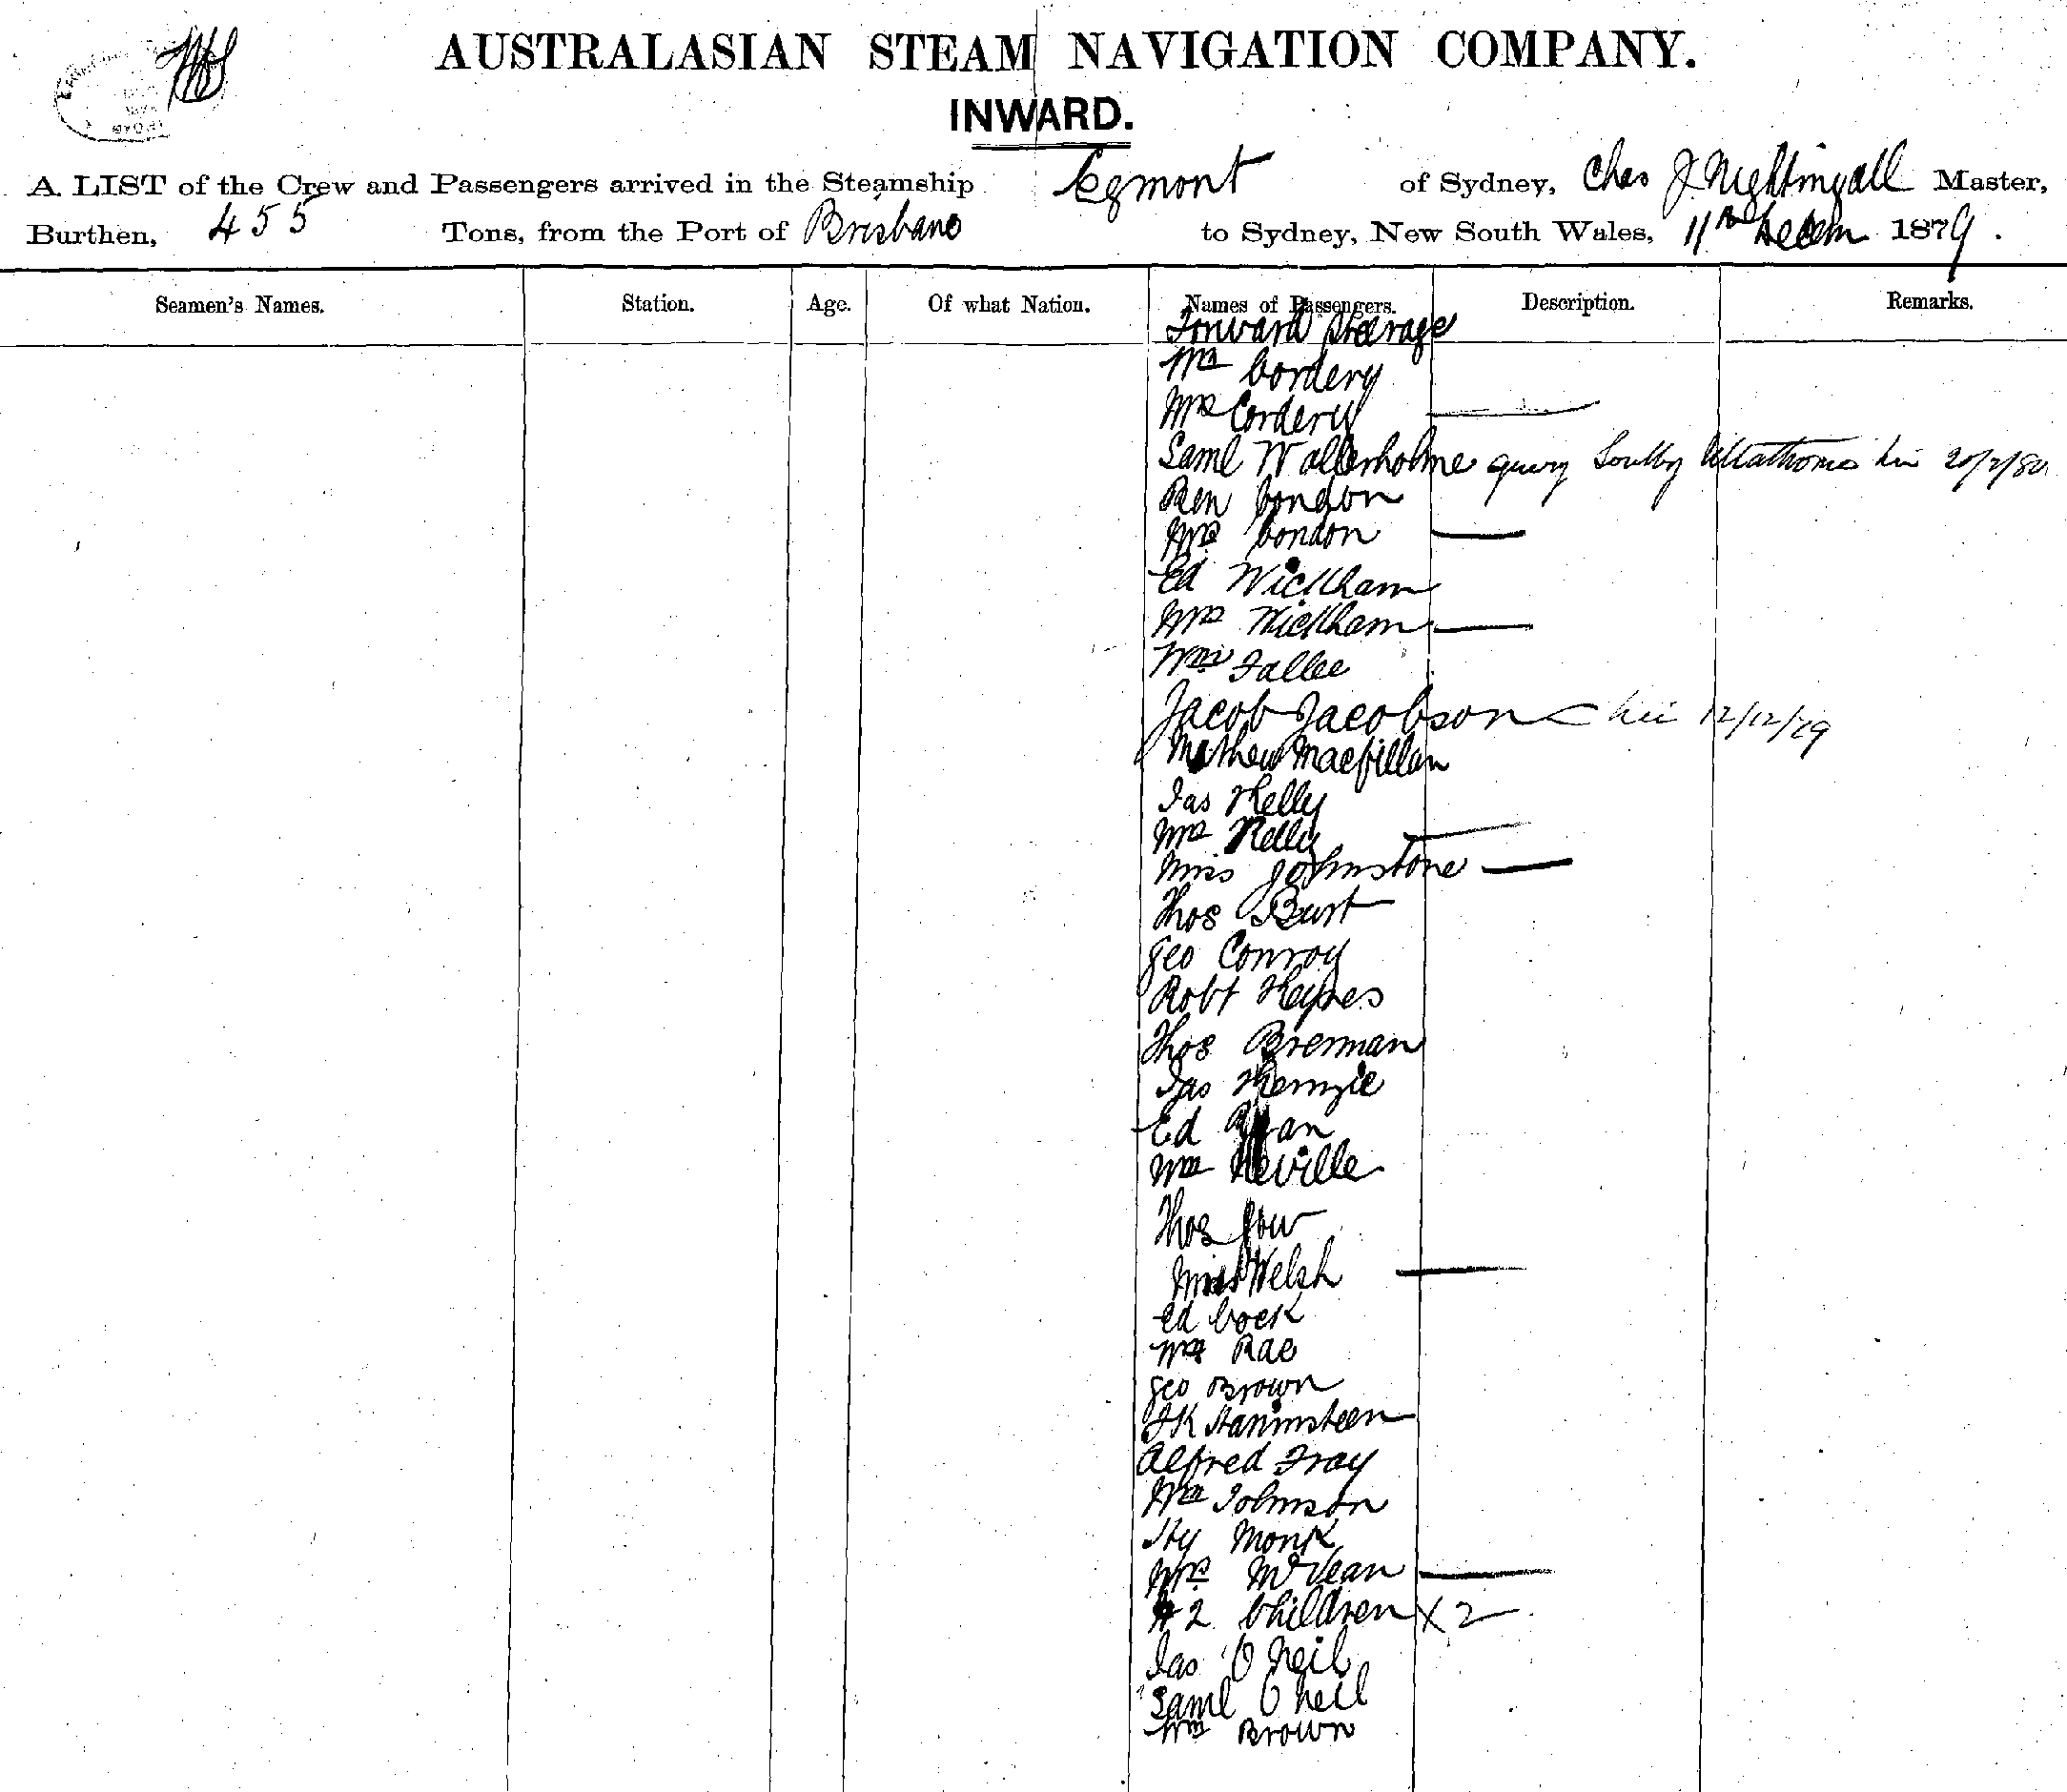 AUSTRALASIAN STEAM NAVIGATION COMPANY.
INWARD.
A LIST of the Crew and Passengers arrived in the Steamship Egmont of Sydney, Chas J. Nightingall Master,
Burthen, 455 Tons, from the Port of Brisbane to Sydney, New South Wales, 11th Decem 1879.
Seamen's Names. Station. Age. Of what Nation. Names of Passengers. Description. Remarks.
Forward Steerage
Wm Cordery
Mrs Cordery
Saml Wallerholme query 20/2/80
Ben Condon
Mrs Condon
Ed Wickham
Mrs Wickham
Wm Fallee
Jacob Jacobson 12/12/79
Mathew Macfillan
Jas Kelly
Mrs Kelly
Miss Johnstone
Thos Burt
Geo Conroy
Robt Haynes
Thos Brennan
Jas Kenzie
Ed Ryan
Wm Neville
Thos Gow
Miss Welsh
Ed Cock
Wm Rae
Geo Brown
Alfred Fray
Wm Johnson
Hy Monk
Mrs McVean
2 Children X 2
Jas O Neil
Saml O Neil
Wm Brown